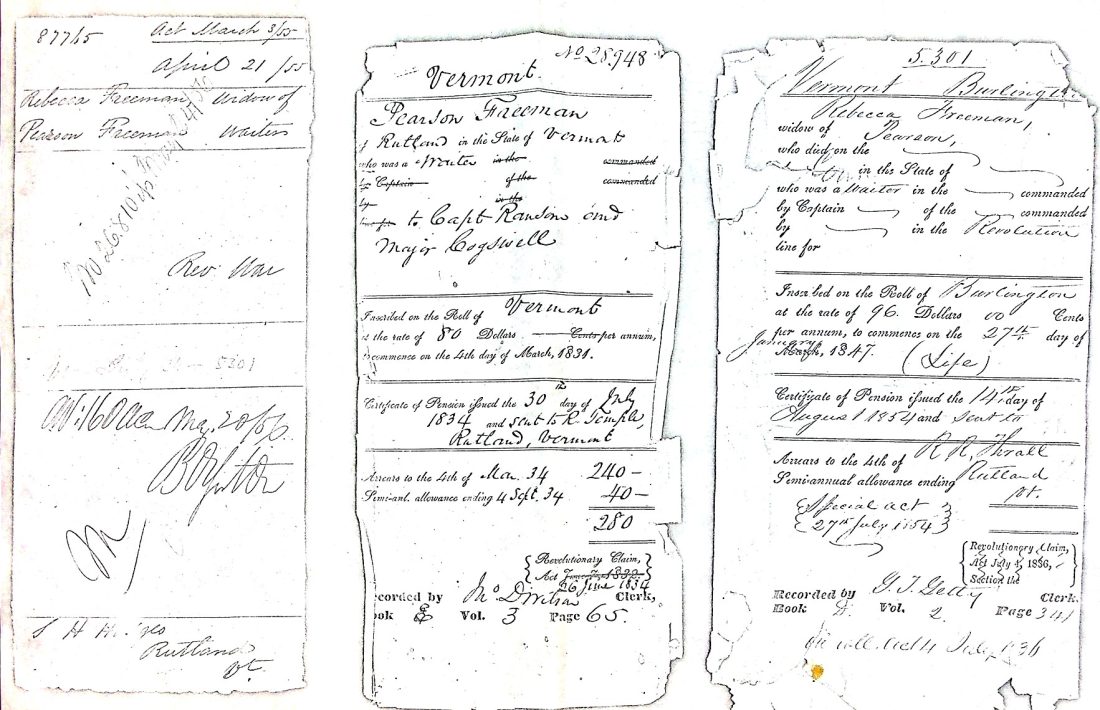 87765 Act March 3/55
April 21/55
Rebecca Freeman Widow of
Pearson Freeman Waiter
Rev. War
5301
160 Boynton
S H
Rutland
Vt.
No 28.948
Vermont.
Pearson Freeman
of Rutland in the State of Vermont
who was a Waiter in the commanded
by Captain of the commanded
by in the
to Capt Ransom and
Major Cogswell
Inscribed on the Roll of Vermont
at the rate of 80 Dollars Cents per annum,
to commence on the 4th day of March, 1831.
Certificate of Pension issued the 30th day of July
1834 and sent to R. Temple,
Rutland, Vermont
Arrears to the 4th of Mar. 34 240 —
Semi-anl. allowance ending 4 Sept. 34 40 —
280
Revolutionary Claim,
Act June 7, 1832
26 June 1834
ecorded by Jno D Wilson Clerk,
ook E Vol. 3 Page 65.
5.301
Vermont Burlington
Rebecca Freeman,
widow of Pearson,
who died on the
in the State of
who was a Waiter in the commanded
by Captain of the commanded
by in the Revolution
line for
Inscribed on the Roll of Burlington
at the rate of 96 Dollars 00 Cents
per annum, to commence on the 27th day of
January March, 1847. (Life)
Certificate of Pension issued the 14th day of
August 1854 and sent to
R. R. Thrall
Arrears to the 4th of Rutland
Semi-annual allowance ending Vt.
Special act
27th July 1854
Revolutionary Claim,
Act July 4, 1836,
Section the
Recorded by G. T. Getty Clerk.
Book D. Vol. 2 Page 341
act 4 July 1836